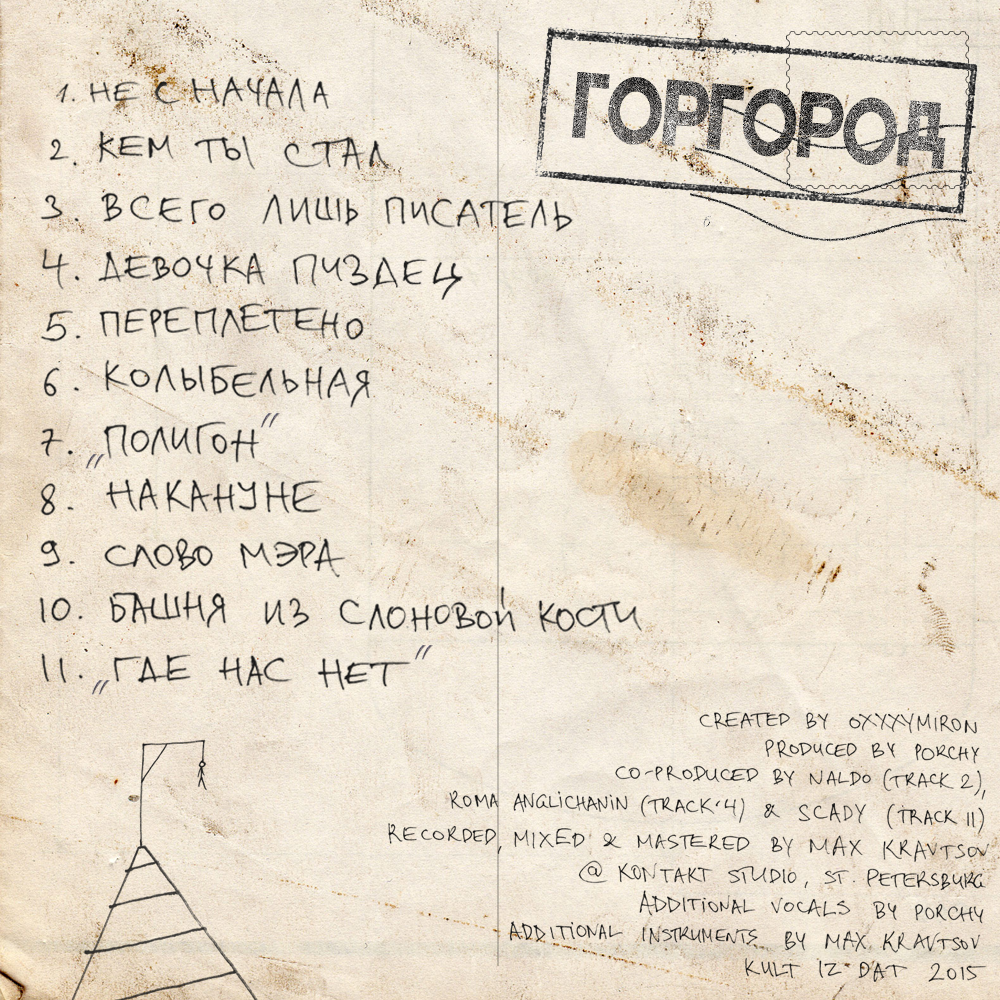 ГОРГОРОД
1. НЕ С НАЧАЛА
2. КЕМ ТЫ СТАЛ
3. ВСЕГО ЛИШЬ ПИСАТЕЛЬ
4. ДЕВОЧКА ПИЗДЕЦ
5. ПЕРЕПЛЕТЕНО
6. КОЛЫБЕЛЬНАЯ
7. „ПОЛИГОН”
8. НАКАНУНЕ
9. СЛОВО МЭРА
10. БАШНЯ ИЗ СЛОНОВОЙ КОСТИ
11. „ГДЕ НАС НЕТ”
CREATED BY OXXXYMIRON
PRODUCED BY PORCHY
CO-PRODUCED BY NALDO (TRACK 2),
ROMA ANGLICHANIN (TRACK 4) & SCADY (TRACK 11)
RECORDED, MIXED & MASTERED BY MAX KRAVTSOV
@ KONTAKT STUDIO, ST. PETERSBURG
ADDITIONAL VOCALS BY PORCHY
ADDITIONAL INSTRUMENTS BY MAX KRAVTSOV
KULT IZ DAT 2015